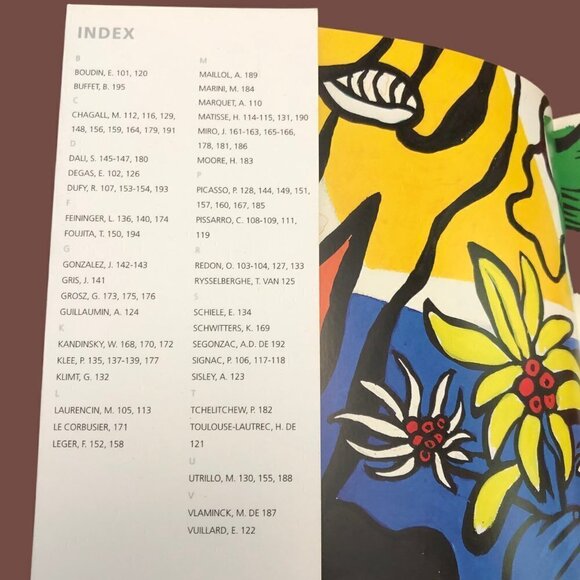 INDEX
B
BOUDIN, E. 101, 120
BUFFET, B. 195
C
CHAGALL, M. 112, 116, 129,
148, 156, 159, 164, 179, 191
D
DALI, S. 145-147, 180
DEGAS, E. 102, 126
DUFY, R. 107, 153-154, 193
F
FEININGER, L. 136, 140, 174
FOUJITA, T. 150, 194
G
GONZALEZ, J. 142-143
GRIS, J. 141
GROSZ, G. 173, 175, 176
GUILLAUMIN, A. 124
K
KANDINSKY, W. 168, 170, 172
KLEE, P. 135, 137-139, 177
KLIMT, G. 132
L
LAURENCIN, M. 105, 113
LE CORBUSIER, 171
LEGER, F. 152, 158
M
MAILLOL, A. 189
MARINI, M. 184
MARQUET, A. 110
MATISSE, H. 114-115, 131, 190
MIRO, J. 161-163, 165-166,
178, 181, 186
MOORE, H. 183
P
PICASSO, P. 128, 144, 149, 151,
157, 160, 167, 185
PISSARRO, C. 108-109, 111,
119
R
REDON, O. 103-104, 127, 133
RYSSELBERGHE, T. VAN 125
S
SCHIELE, E. 134
SCHWITTERS, K. 169
SEGONZAC, A.D. DE 192
SIGNAC, P. 106, 117-118
SISLEY, A. 123
T
TCHELITCHEW, P. 182
TOULOUSE-LAUTREC, H. DE
121
U
UTRILLO, M. 130, 155, 188
V
VLAMINCK, M. DE 187
VUILLARD, E. 122